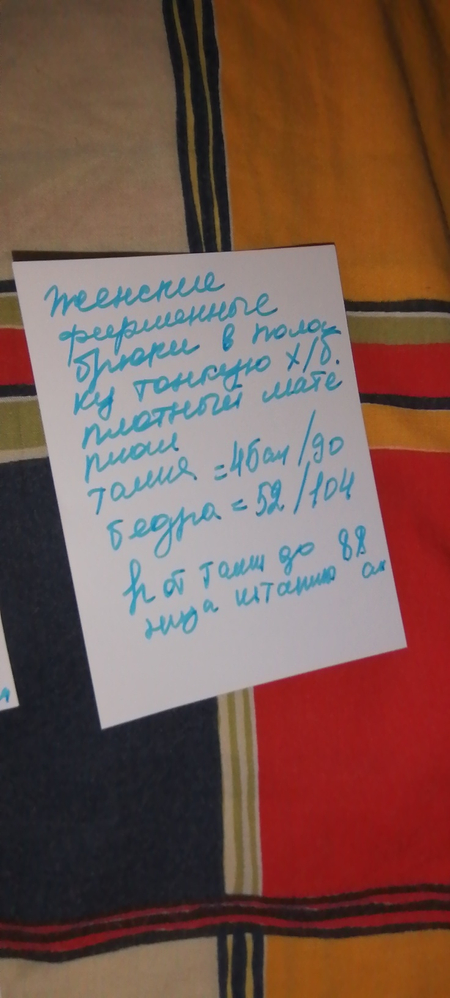 Женские
фирменные
брюки в полос
ку тонкую х/б.
плотный мате
риал
талия = 46см/90
бедра = 52/104
h от талии до 88
низа штанины см